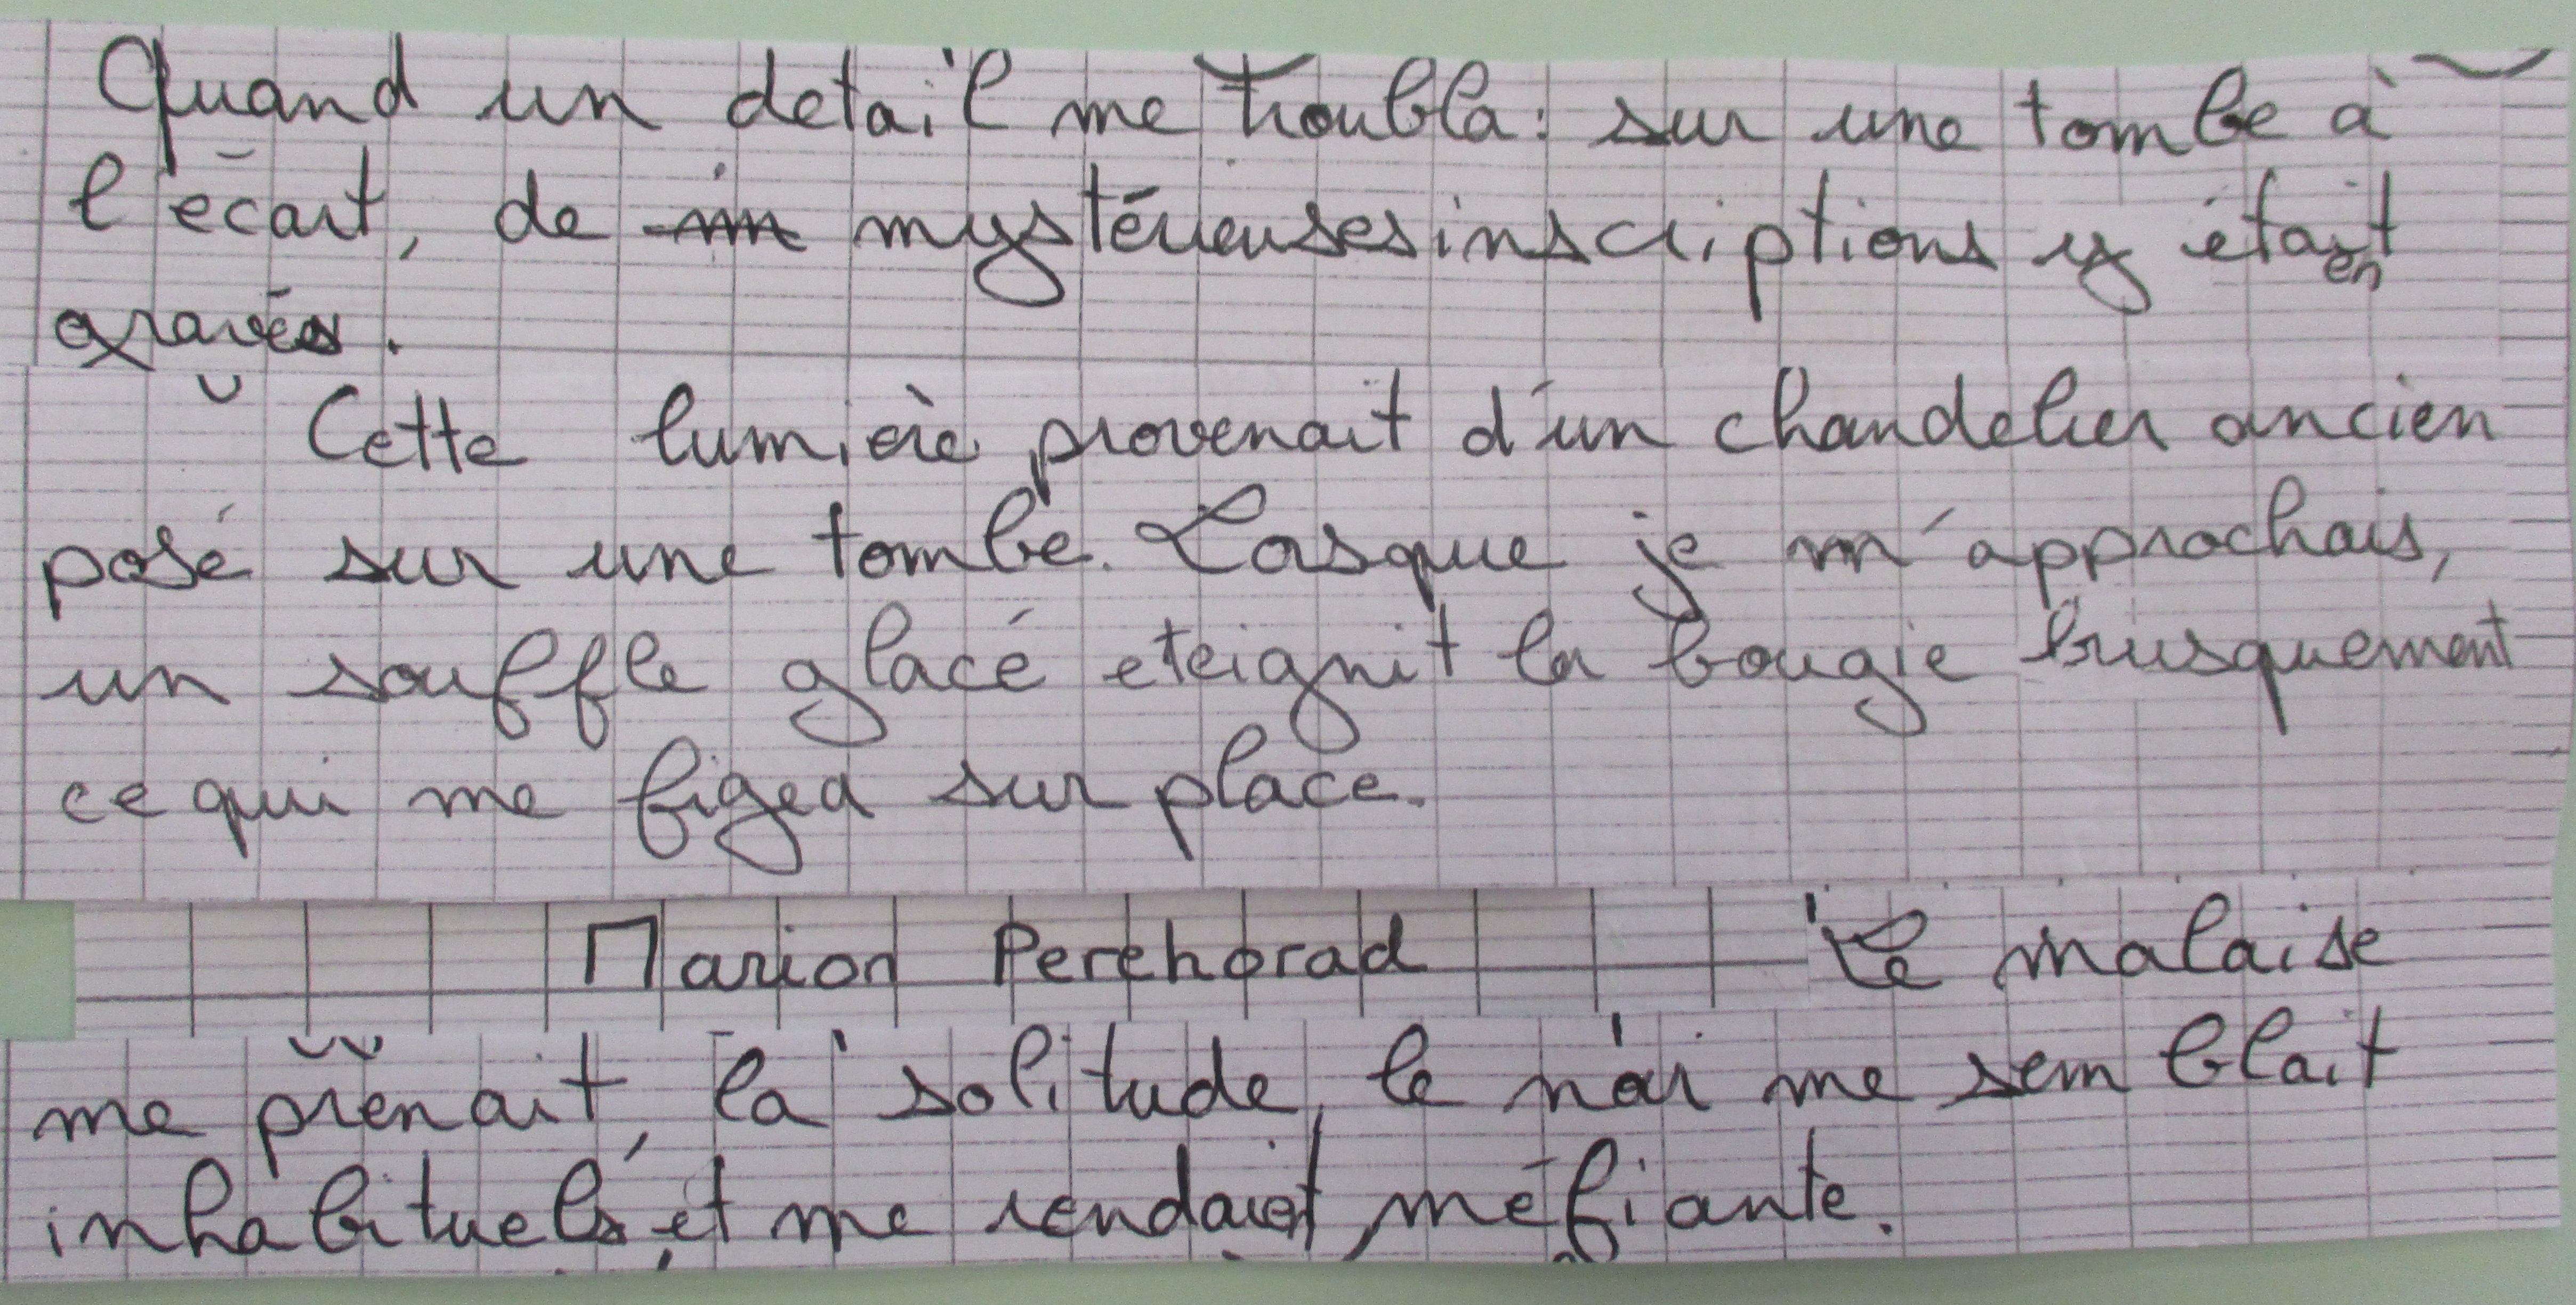 Quand un detail me troubla: sur une tombe à
l'écart, de mystérieuses inscriptions y étaient
gravés.
Cette lumière provenait d'un chandelier ancien
posé sur une tombe. Lorsque je m'approchais,
un souffle glacé eteignit la bougie brusquement
ce qui me figea sur place.
Marion Perehorad Le malaise
me prenait, la solitude, le noir me semblait
inhabituels et me rendaient méfiante.